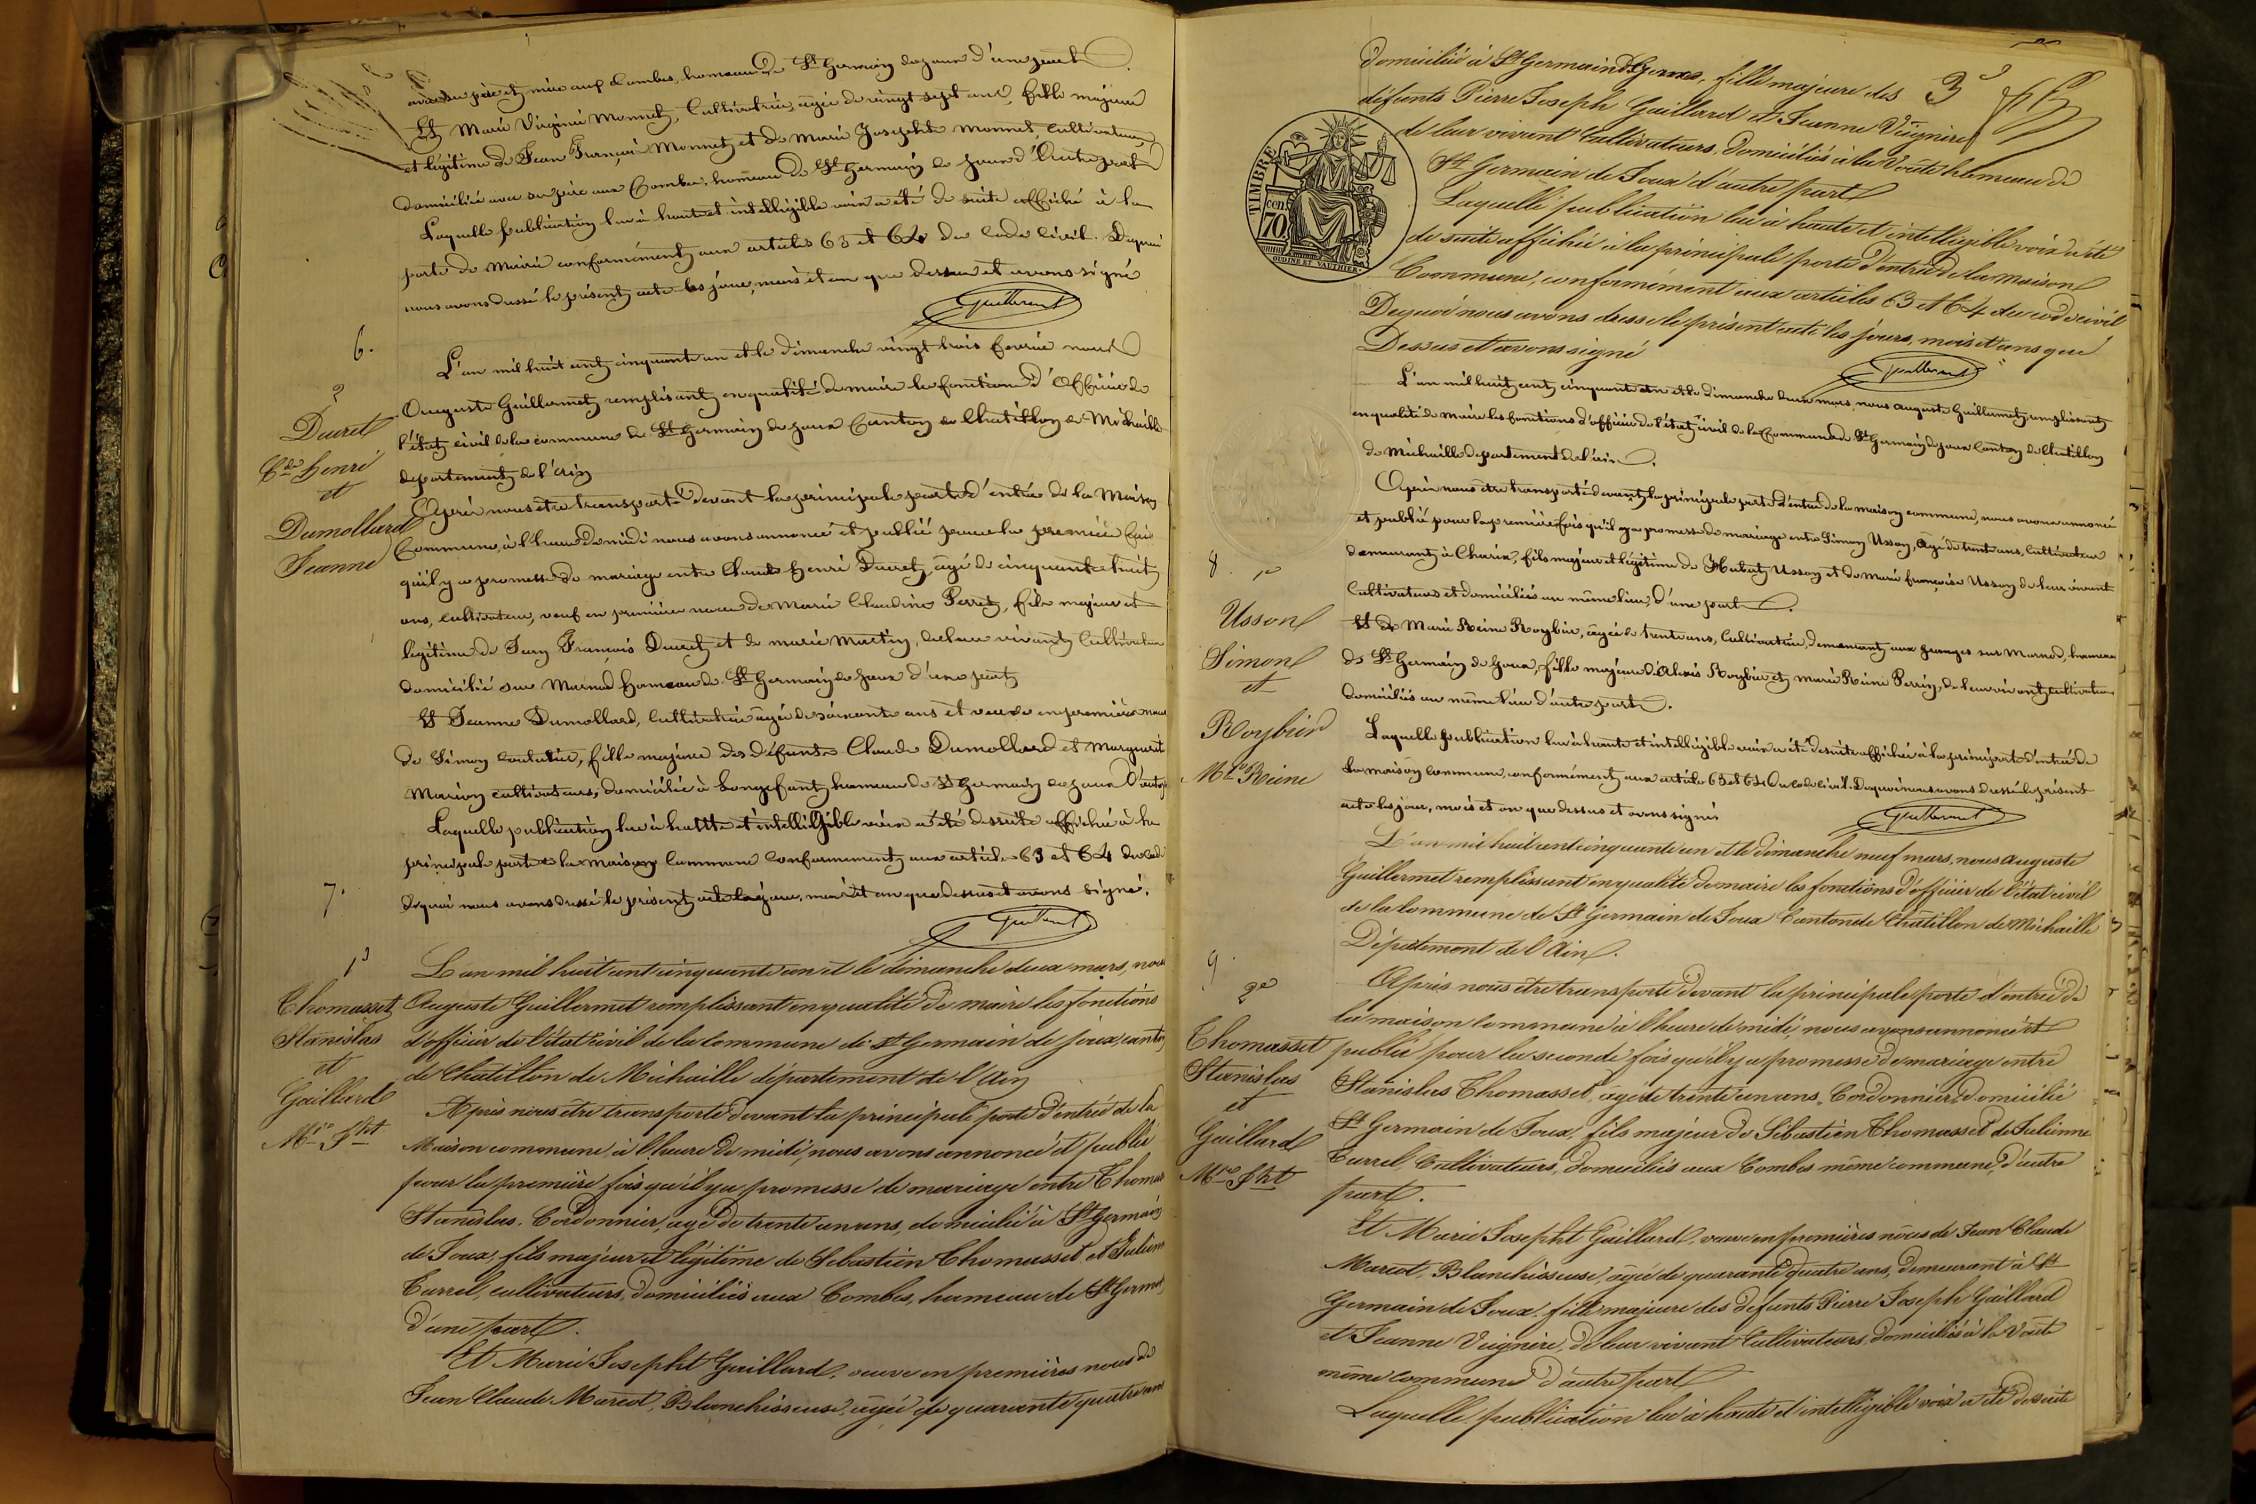 avec ses père et mère aux Combes, hameau de St Germain de joux d'une part
Et Marie Virginie Monnet, Cultivatrice, agée de vingt sept ans, fille majeure
et légitime de Jean François Monnet et de Marie Josephte Monnet, cultivateurs,
domiciliée avec son père aux Combes, hameau de St Germain de joux d'Autre part
Laquelle publication lue à haute et intelligible voix a été de suite affiché à la
porte de Mairie conformément aux articles 63 et 64 du Code Civil. Dequoi
nous avons dressé le présent acte les jour, mois et an que dessus et avons signé
Guillermet
6.
2
Ducret
Cde henri
et
Dumollard
Jeanne
L'an mil huit cent cinquante un et le dimanche vingt trois février nous
Auguste Guillermet remplissant en qualité de maire les fonctions d'Officier de
l'état civil de la commune de St Germain de joux Canton de Chatillon de Michaille
departement de l'ain
Après nous être transporté devant la principale porte d'entrée de la Maison
Commune, à l'heure de midi nous avons annoncé et publié pour la première fois
qu'il y a promesse de mariage entre Claude henri Ducret, agé de cinquante huit
ans, cultivateur, veuf en première noces de Marie Claudine Perret, fils majeur et
legitime de Jean François Ducret et de marie Martin, de leur vivant Cultivateurs
domicilié sur Marnod hameau de St Germain de joux d'une part
Et Jeanne Dumollard, Cultivatrice agée de soixante ans et veuve en première noces
de Simon Couturier, fille majeure des défunts Claude Dumollard et Marguerite
Marion cultivateurs, domiciliée à Longefant hameau de St Germain de joux D'autre
Laquelle publication lue à hautte et intelligible voix a été de suite affichée à la
principale porte de la Maison Commune Conformement aux articles 63 et 64 du Code
dequoi nous avons dressé le présent acte les jour, mois et an que dessus et avons signé.
Guillermet
7.
1e
Thomasset
Stanislas
et
Gaillard
Mie Jht
L'an mil huit cent cinquante un et le dimanche deux mars, nous
Auguste Guillermet remplissant en qualité de maire les fonctions
d'officier de l'état civil de la Commune de St Germain de joux, canton
de Chatillon de Michaille département de l'Ain
Après nous être transporté devant la principale porte d'entrée de la
Maison commune, à l'heure de midi, nous avons annoncé et publié
pour la première fois qu'il y a promesse de mariage entre Thomas
Stanislas, Cordonnier, agé de trente un ans, domicilié à St Germain
de Joux, fils majeur et légitime de Sébastien Thomasset et Julienne
Currel, cultivateurs, domiciliés aux Combes, hameau de St Germ
d'une part.
Et Marie Josepht Gaillard, veuve en premières noces de
Jean Claude Marcot, Blanchisseuse, agée de quarante quatre ans
3e
domiciliée à St Germain de Joux, fille majeure des
défunts Pierre Joseph Gaillard et Jeanne Vuignère
de leur vivant Cultivateurs, domiciliés à la Voute hameau de
St Germain de Joux d'autre part
Laquelle publication lue à haute et intelligible voix a été
de suite affichée à la principale porte d'entrée de la maison
Commune, conformément aux articles 63 et 64 du code civil
Dequoi nous avons dressé le présent acte les jours, mois et ans que
Dessus et avons signé
Guillermet
TIMBRE
70.
cen.
OUDINE ET VAUTHIER
8. 1e
Usson
Simon
et
Roybier
Mie Reine
L'an mil huit cent cinquante un et le dimanche deux mars, nous auguste Guillermet remplissant
en qualité de maire les fonctions d'officier de l'état civil de la Commune de St Germain de joux Canton de Chatillon
de Michaille departement de l'ain.
Après nous être transporté devant la principale porte d'entrée de la maison commune, nous avons annoncé
et publié pour la première fois qu'il y a promesse de mariage entre Simon Usson, Agé de trente ans, Cultivateur
demeurant à Charix, fils majeur et légitime de Hubert Usson et de Marie françoise Usson de leur vivant
Cultivateurs et domiciliés au même lieu, d'une part.
Et de Marie Reine Roybier, agée de trente ans, Cultivatrice, demeurant aux granges sur Marnod, hameau
de St Germain de Joux, fille majeure d'Alexis Roybier et Marie Reine Perrin, de leur vivant cultivateurs
domiciliés au même lieu d'autre part.
Laquelle publication lue à haute et intelligible voix a été de suite affichée à la principale porte d'entrée de
la maison Commune, conformément aux articles 63 et 64 Du Code Civil. Dequoi nous avons dressé le présent
acte les jour, mois et an que dessus et avons signé
Guillermet
9.
2e
Thomasset
Stanislas
et
Gaillard
Mie Jht
L'an mil huit cent cinquante un et le dimanche neuf mars, nous Auguste
Guillermet remplissant en qualité de maire les fonctions d'officier de l'état civil
de la Commune de St Germain de Joux Canton de Chatillon de Michaille
Département de l'Ain.
Après nous être transporté devant la principale porte d'entrée de
la maison Commune à l'heure de midi, nous avons annoncé et
publié pour la seconde fois qu'il y a promesse de mariage entre
Stanislas Thomasset, agé de trente un ans, Cordonnier, domicilié
St Germain de Joux, fils majeur de Sébastien Thomasset de Julienne
Currel, Cultivateurs, domiciliés aux Combes même commune, d'autre
part.
Et Marie Josepht Gaillard, veuve en premières noces de Jean Claude
Marcot, Blanchisseuse, agée de quarante quatre ans, demeurant à St
Germain de Joux, fille majeure des défunts Pierre Joseph Gaillard
et Jeanne Vuignère, de leur vivant Cultivateurs, domiciliés à la Voute
même commune d'autre part
Laquelle publication lue à haute et intelligible voix a été de suite